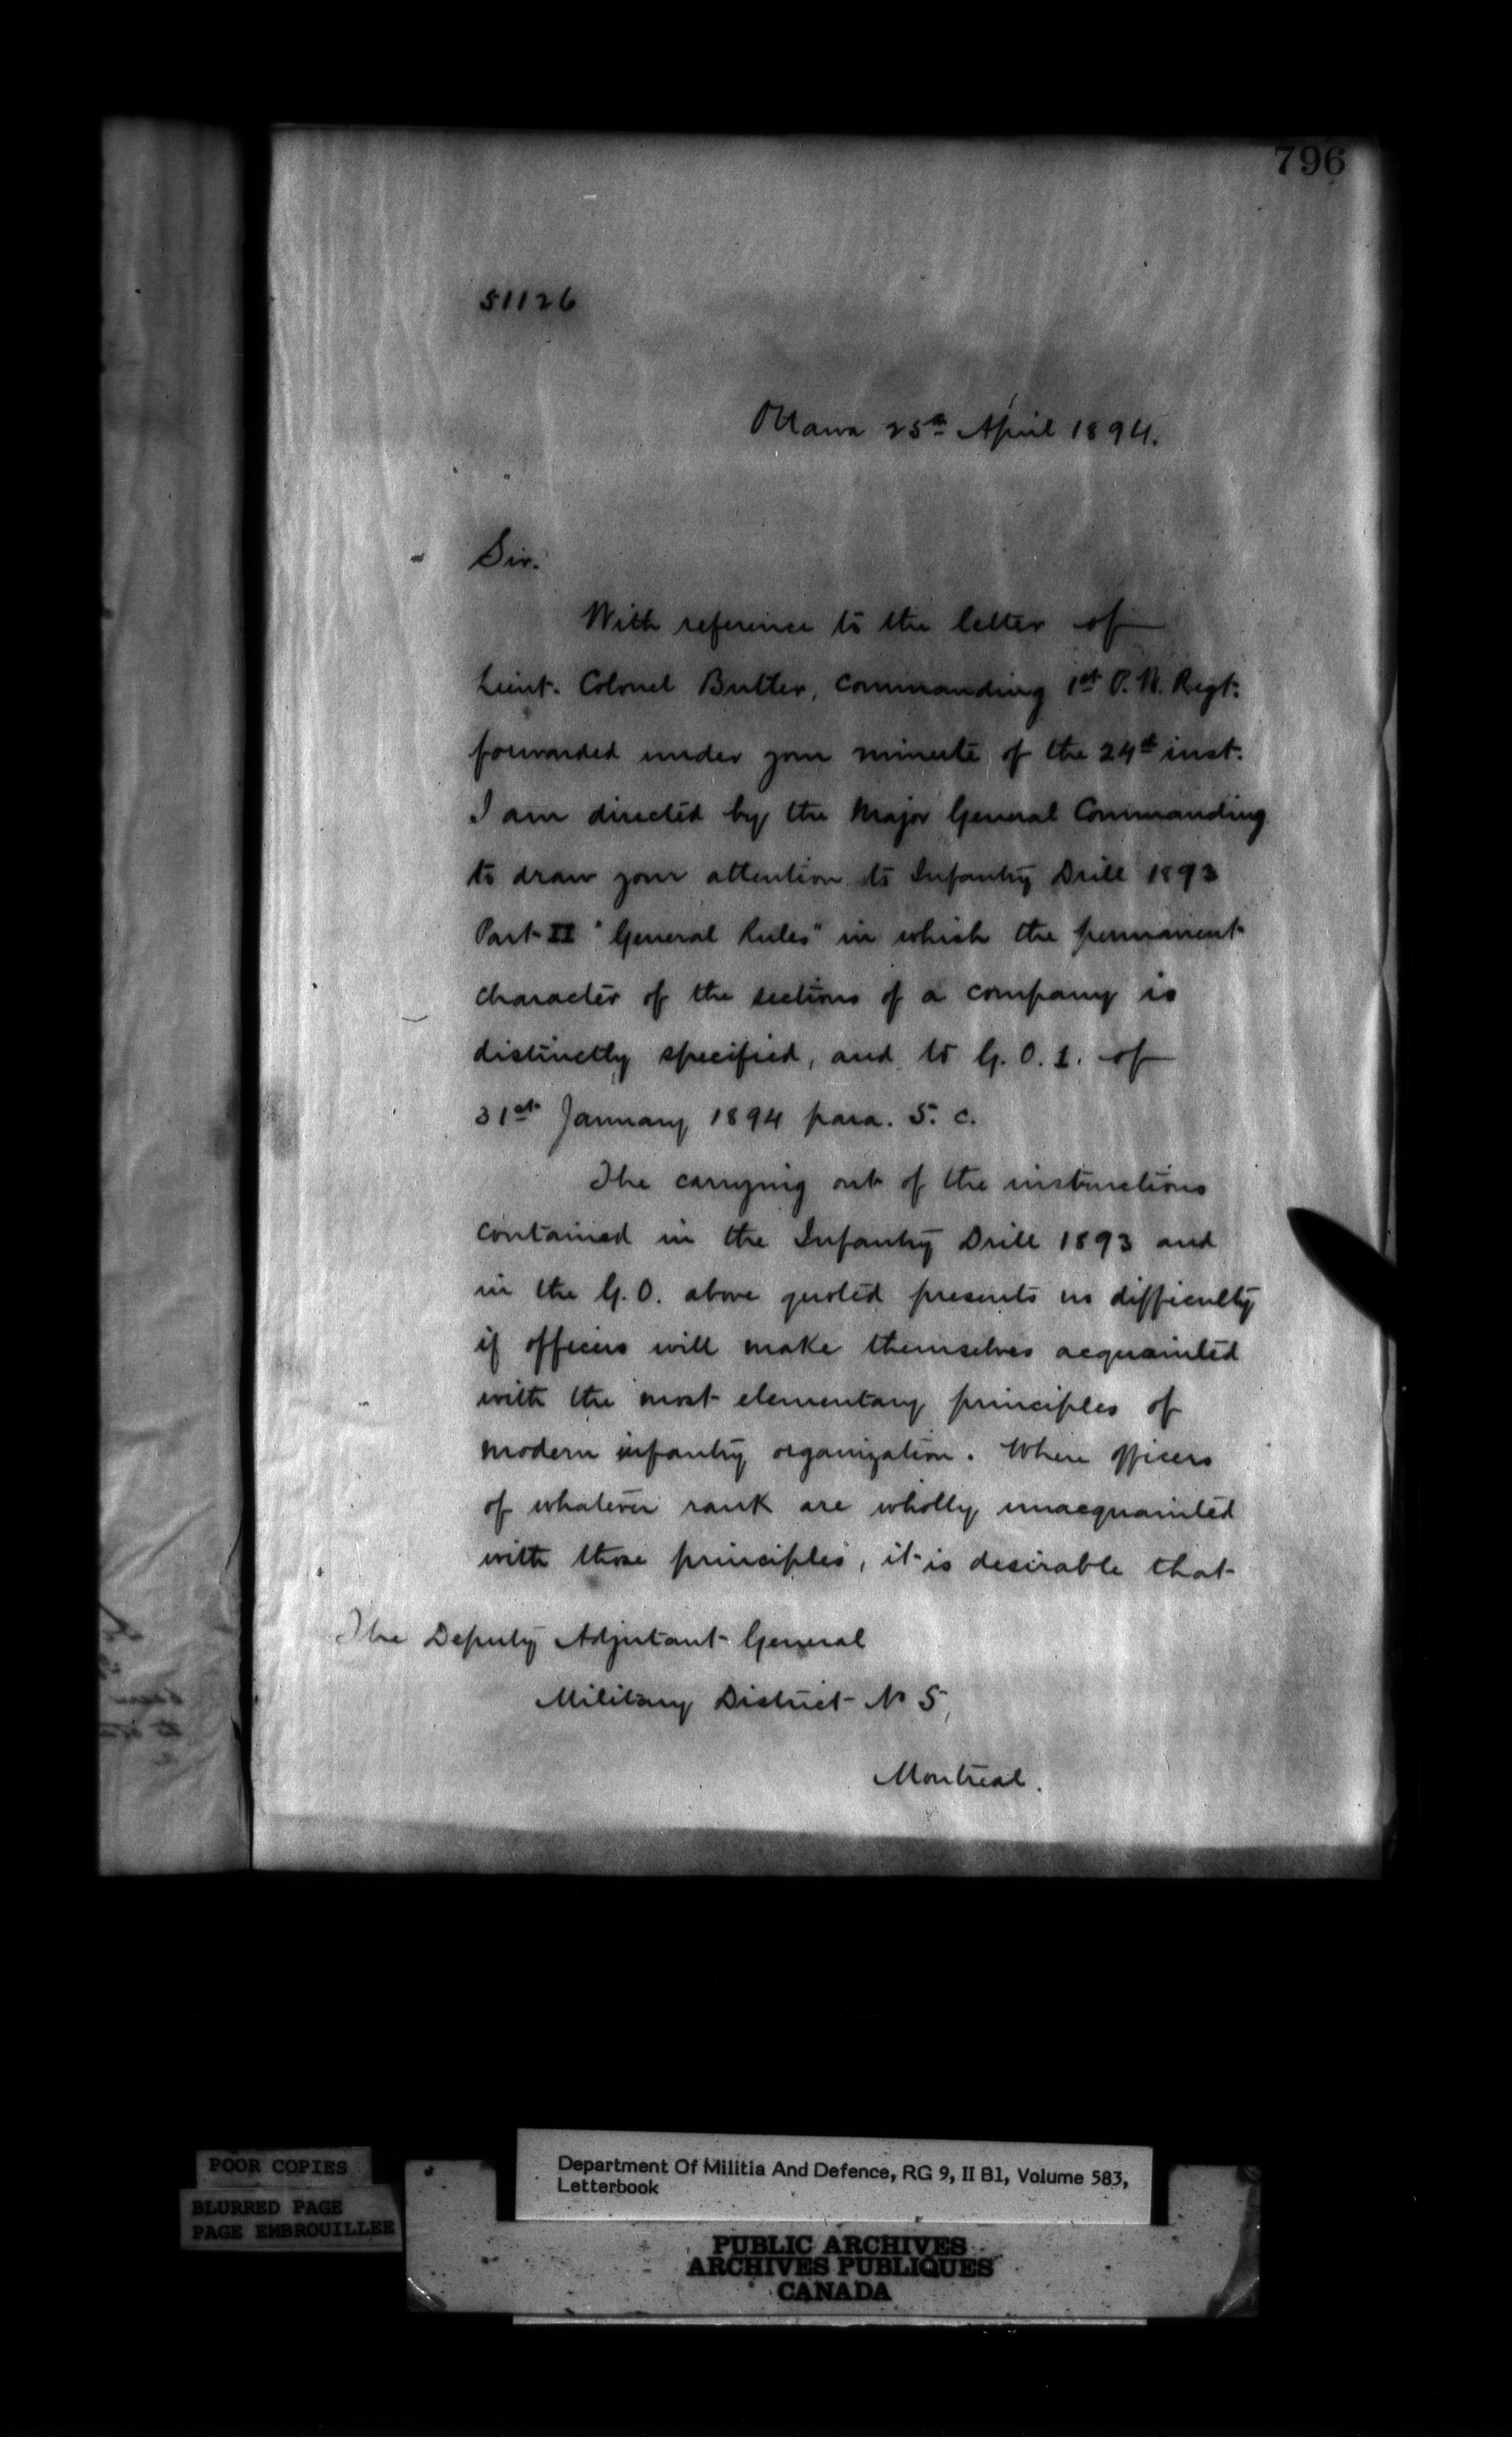 796
51126
Ottawa 25th April 1894.
Sir.
With reference to the letter of
Lieut. Colonel Butler, Commanding 1st P. W. Regt.
forwarded under your minute of the 24th inst.
I am directed by the Major General Commanding
to draw your attention to Infantry Drill 1893
Part II "General Rules" in which the permanent
character of the sections of a company is
distinctly specified, and to G. O. 1. of
31st January 1894 para. 5. c.
The carrying out of the instructions
contained in the Infantry Drill 1893 and
in the G. O. above quoted presents no difficulty
if officers will make themselves acquainted
with the most elementary principles of
modern infantry organization. Where officers
of whatever rank are wholly unacquainted
with those principles, it is desirable that
The Deputy Adjutant General
Military District No 5,
Montreal.
POOR COPIES
BLURRED PAGE
PAGE EMBROUILLEE
Department Of Militia And Defence, RG 9, II B1, Volume 583,
Letterbook
PUBLIC ARCHIVES
ARCHIVES PUBLIQUES
CANADA